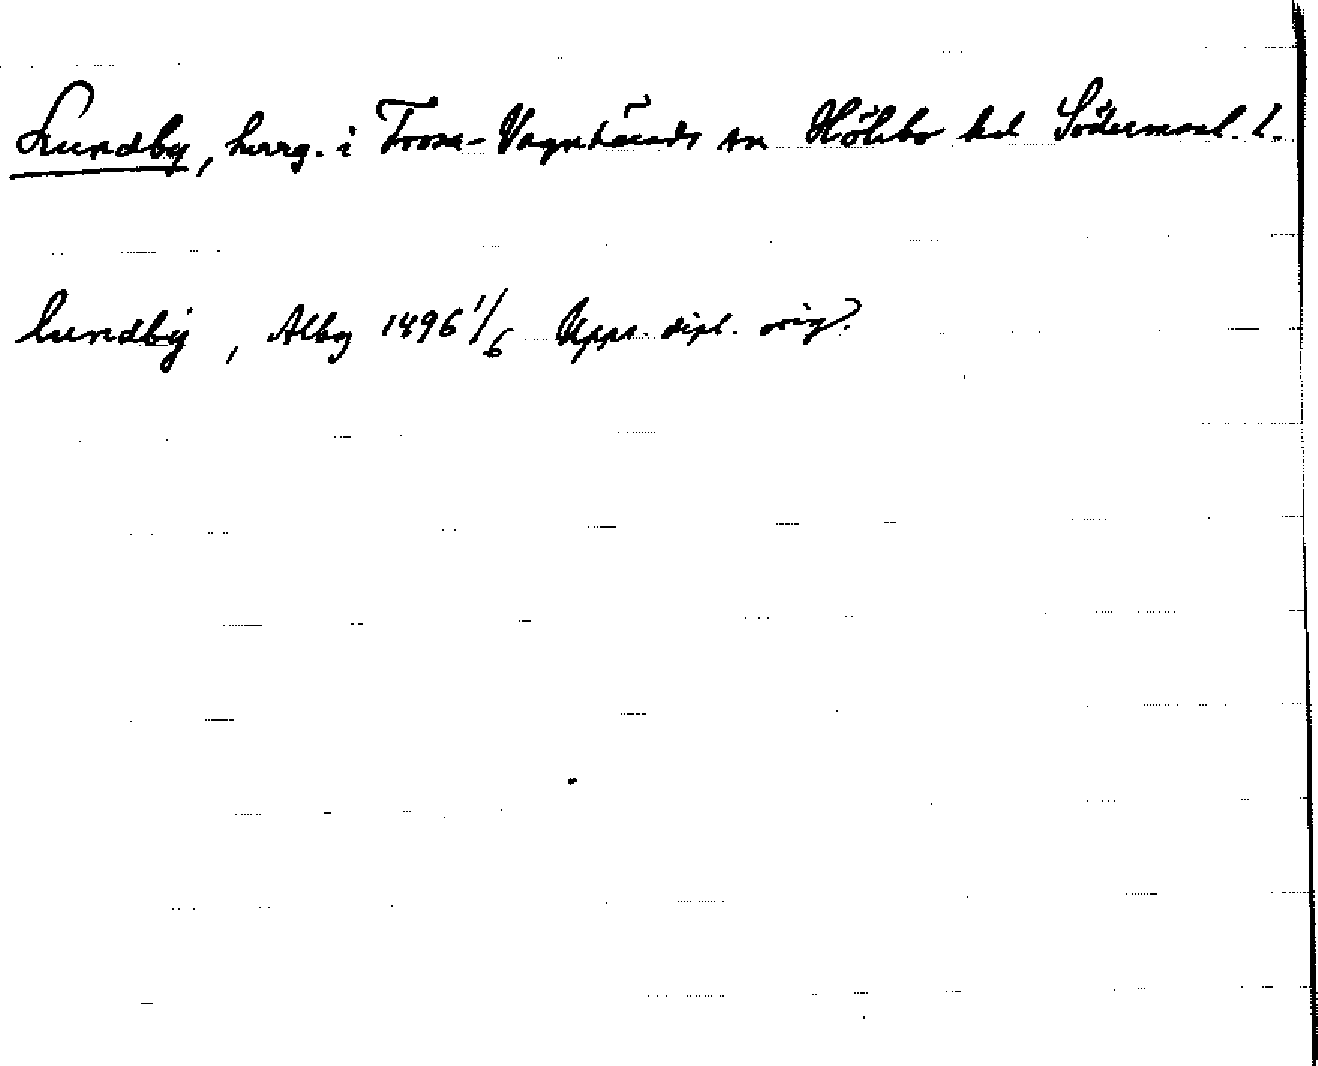 Lundby, herrg. i Trosa-Vagnhärads sn Hölebo hd Södermanl. l.
lundbÿ, Alby 1496 1/6 Upps. dipl. orig.